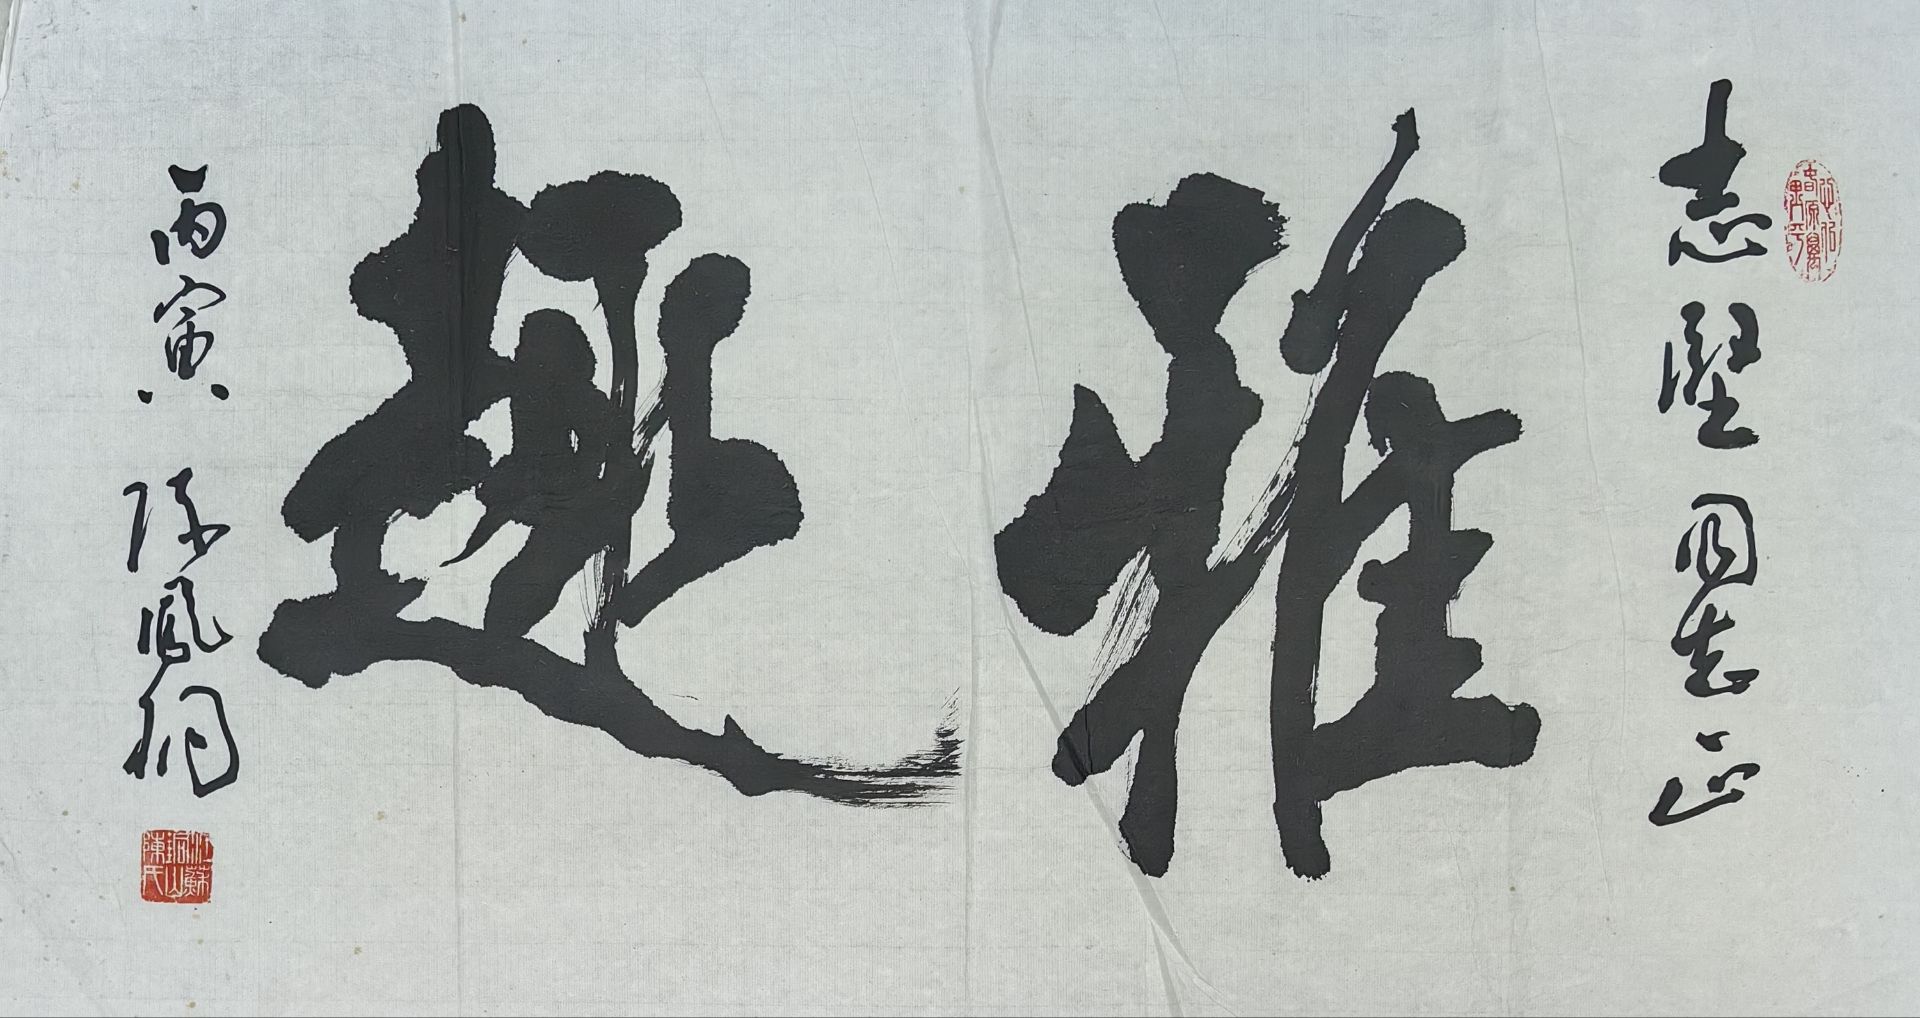 志堅同志正
雅趣
丙寅 陈凤桐
江蘇銅山陳氏